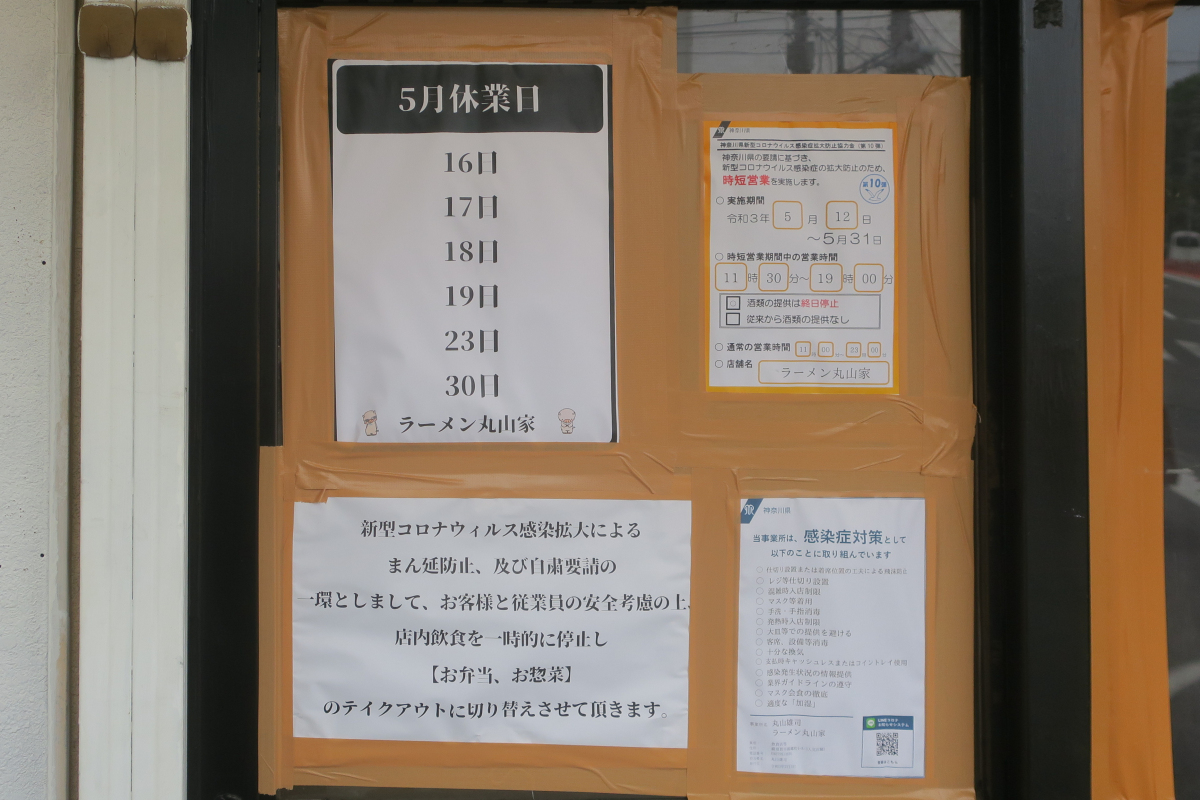 5月休業日
16日
17日
18日
19日
23日
30日
ラーメン丸山家
神奈川県
神奈川県新型コロナウイルス感染症拡大防止協力金（第10弾）
神奈川県の要請に基づき、
新型コロナウイルス感染症の拡大防止のため、
時短営業を実施します。
第10弾
○ 実施期間
令和3年 5 月 12 日
～5月31日
○ 時短営業期間中の営業時間
11 時 30 分～ 19 時 00 分
酒類の提供は終日停止
従来から酒類の提供なし
○ 通常の営業時間 11 00
○ 店舗名 ラーメン丸山家
新型コロナウィルス感染拡大による
まん延防止、及び自粛要請の
一環としまして、お客様と従業員の安全考慮の上、
店内飲食を一時的に停止し
【お弁当、お惣菜】
のテイクアウトに切り替えさせて頂きます。
神奈川県
当事業所は、感染症対策として
以下のことに取り組んでいます
○ 仕切り設置または座席位置の工夫による飛沫防止
○ レジ等仕切り設置
○ 混雑時入店制限
○ マスク等着用
○ 手洗・手指消毒
○ 発熱時入店制限
○ 大皿等での提供を避ける
○ 客席、設備等消毒
○ 十分な換気
○ 支払時キャッシュレスまたはコイントレイ使用
○ 感染発生状況の情報提供
○ 業界ガイドラインの遵守
○ マスク会食の徹底
○ 適度な「加湿」
丸山雄司
ラーメン丸山家